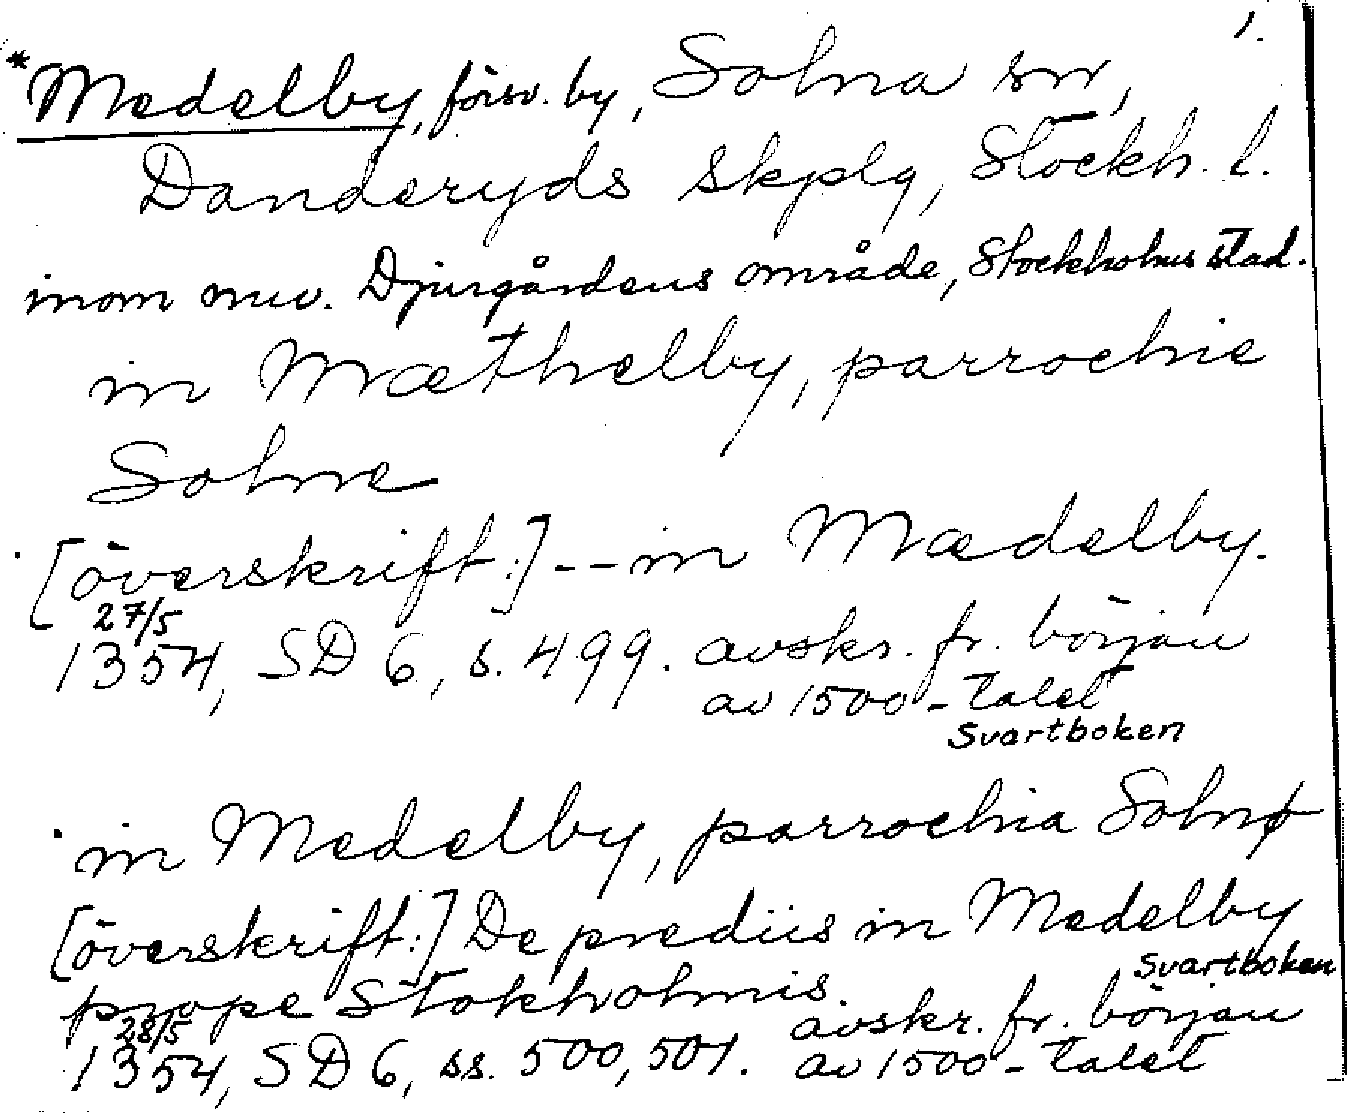 1.
*Medelby, försv. by, Solna sn,
Danderyds skplg, Stockh. l.
inom nuv. Djurgårdens område, Stockholms stad.
in Mæthelby, parrochie
Solne
[överskrift:] -- in Mædelby.
27/5
1354, SD 6, s. 499. avskr. fr. början
av 1500-talet
Svartboken
in Medelby, parrochia Solnø
[överskrift:] De prediis in Medelby
prope Stokholmis.
Svartboken
28/5
1354, SD 6, ss. 500, 501. avskr. fr. början
av 1500-talet